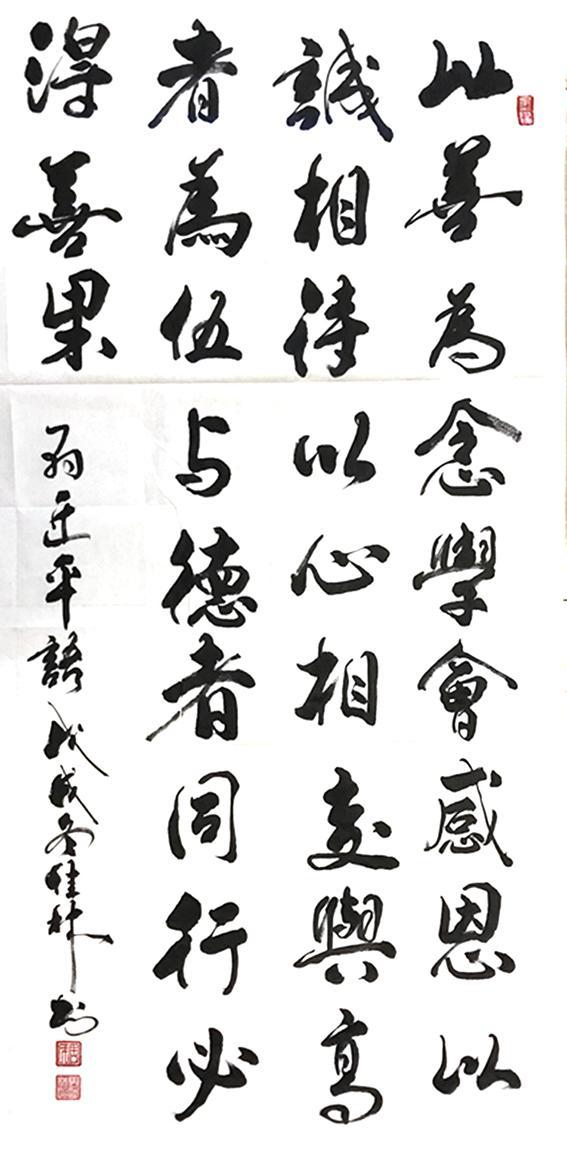 以善为念學會感恩以
誠相待以心相交與高
者為伍与德者同行必
得善果
平語戊戌冬桂林书